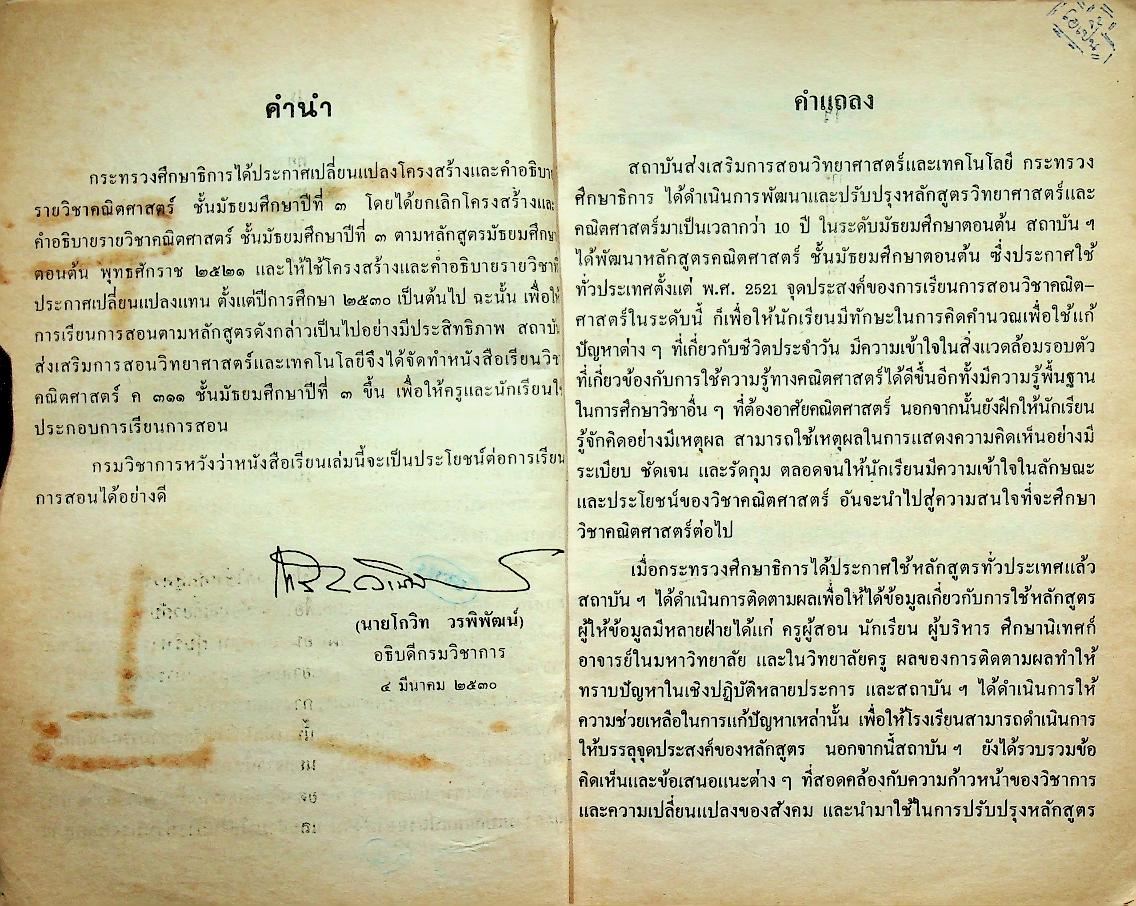 คำนำ
กระทรวงศึกษาธิการได้ประกาศเปลี่ยนแปลงโครงสร้างและคำอธิบา
รายวิชาคณิตศาสตร์ ชั้นมัธยมศึกษาปีที่ ๓ โดยได้ยกเลิกโครงสร้างและ
คำอธิบายรายวิชาคณิตศาสตร์ ชั้นมัธยมศึกษาปีที่ ๓ ตามหลักสูตรมัธยมศึกษา
ตอนต้น พุทธศักราช ๒๕๒๑ และให้ใช้โครงสร้างและคำอธิบายรายวิชาที่
ประกาศเปลี่ยนแปลงแทน ตั้งแต่ปีการศึกษา ๒๕๓๐ เป็นต้นไป ฉะนั้น เพื่อให้
การเรียนการสอนตามหลักสูตรดังกล่าวเป็นไปอย่างมีประสิทธิภาพ สถาบัน
ส่งเสริมการสอนวิทยาศาสตร์และเทคโนโลยีจึงได้จัดทำหนังสือเรียนวิช
คณิตศาสตร์ ค ๓๑๑ ชั้นมัธยมศึกษาปีที่ ๓ ขึ้น เพื่อให้ครูและนักเรียนใ
ประกอบการเรียนการสอน
กรมวิชาการหวังว่าหนังสือเรียนเล่มนี้จะเป็นประโยชน์ต่อการเรียน
การสอนได้อย่างดี
(นายโกวิท วรพิพัฒน์)
อธิบดีกรมวิชาการ
๔ มีนาคม ๒๕๓๐
คำแถลง
สถาบันส่งเสริมการสอนวิทยาศาสตร์และเทคโนโลยี กระทรวง
ศึกษาธิการ ได้ดำเนินการพัฒนาและปรับปรุงหลักสูตรวิทยาศาสตร์และ
คณิตศาสตร์มาเป็นเวลากว่า 10 ปี ในระดับมัธยมศึกษาตอนต้น สถาบัน ฯ
ได้พัฒนาหลักสูตรคณิตศาสตร์ ชั้นมัธยมศึกษาตอนต้น ซึ่งประกาศใช้
ทั่วประเทศตั้งแต่ พ.ศ. 2521 จุดประสงค์ของการเรียนการสอนวิชาคณิต–
ศาสตร์ในระดับนี้ ก็เพื่อให้นักเรียนมีทักษะในการคิดคำนวณเพื่อใช้แก้
ปัญหาต่าง ๆ ที่เกี่ยวกับชีวิตประจำวัน มีความเข้าใจในสิ่งแวดล้อมรอบตัว
ที่เกี่ยวข้องกับการใช้ความรู้ทางคณิตศาสตร์ได้ดีขึ้นอีกทั้งมีความรู้พื้นฐาน
ในการศึกษาวิชาอื่น ๆ ที่ต้องอาศัยคณิตศาสตร์ นอกจากนั้นยังฝึกให้นักเรียน
รู้จักคิดอย่างมีเหตุผล สามารถใช้เหตุผลในการแสดงความคิดเห็นอย่างมี
ระเบียบ ชัดเจน และรัดกุม ตลอดจนให้นักเรียนมีความเข้าใจในลักษณะ
และประโยชน์ของวิชาคณิตศาสตร์ อันจะนำไปสู่ความสนใจที่จะศึกษา
วิชาคณิตศาสตร์ต่อไป
เมื่อกระทรวงศึกษาธิการได้ประกาศใช้หลักสูตรทั่วประเทศแล้ว
สถาบัน ฯ ได้ดำเนินการติดตามผลเพื่อให้ได้ข้อมูลเกี่ยวกับการใช้หลักสูตร
ผู้ให้ข้อมูลมีหลายฝ่ายได้แก่ ครูผู้สอน นักเรียน ผู้บริหาร ศึกษานิเทศก์
อาจารย์ในมหาวิทยาลัย และในวิทยาลัยครู ผลของการติดตามผลทำให้
ทราบปัญหาในเชิงปฏิบัติหลายประการ และสถาบัน ฯ ได้ดำเนินการให้
ความช่วยเหลือในการแก้ปัญหาเหล่านั้น เพื่อให้โรงเรียนสามารถดำเนินการ
ให้บรรลุจุดประสงค์ของหลักสูตร นอกจากนี้สถาบัน ฯ ยังได้รวบรวมข้อ
คิดเห็นและข้อเสนอแนะต่าง ๆ ที่สอดคล้องกับความก้าวหน้าของวิชาการ
และความเปลี่ยนแปลงของสังคม และนำมาใช้ในการปรับปรุงหลักสูตร